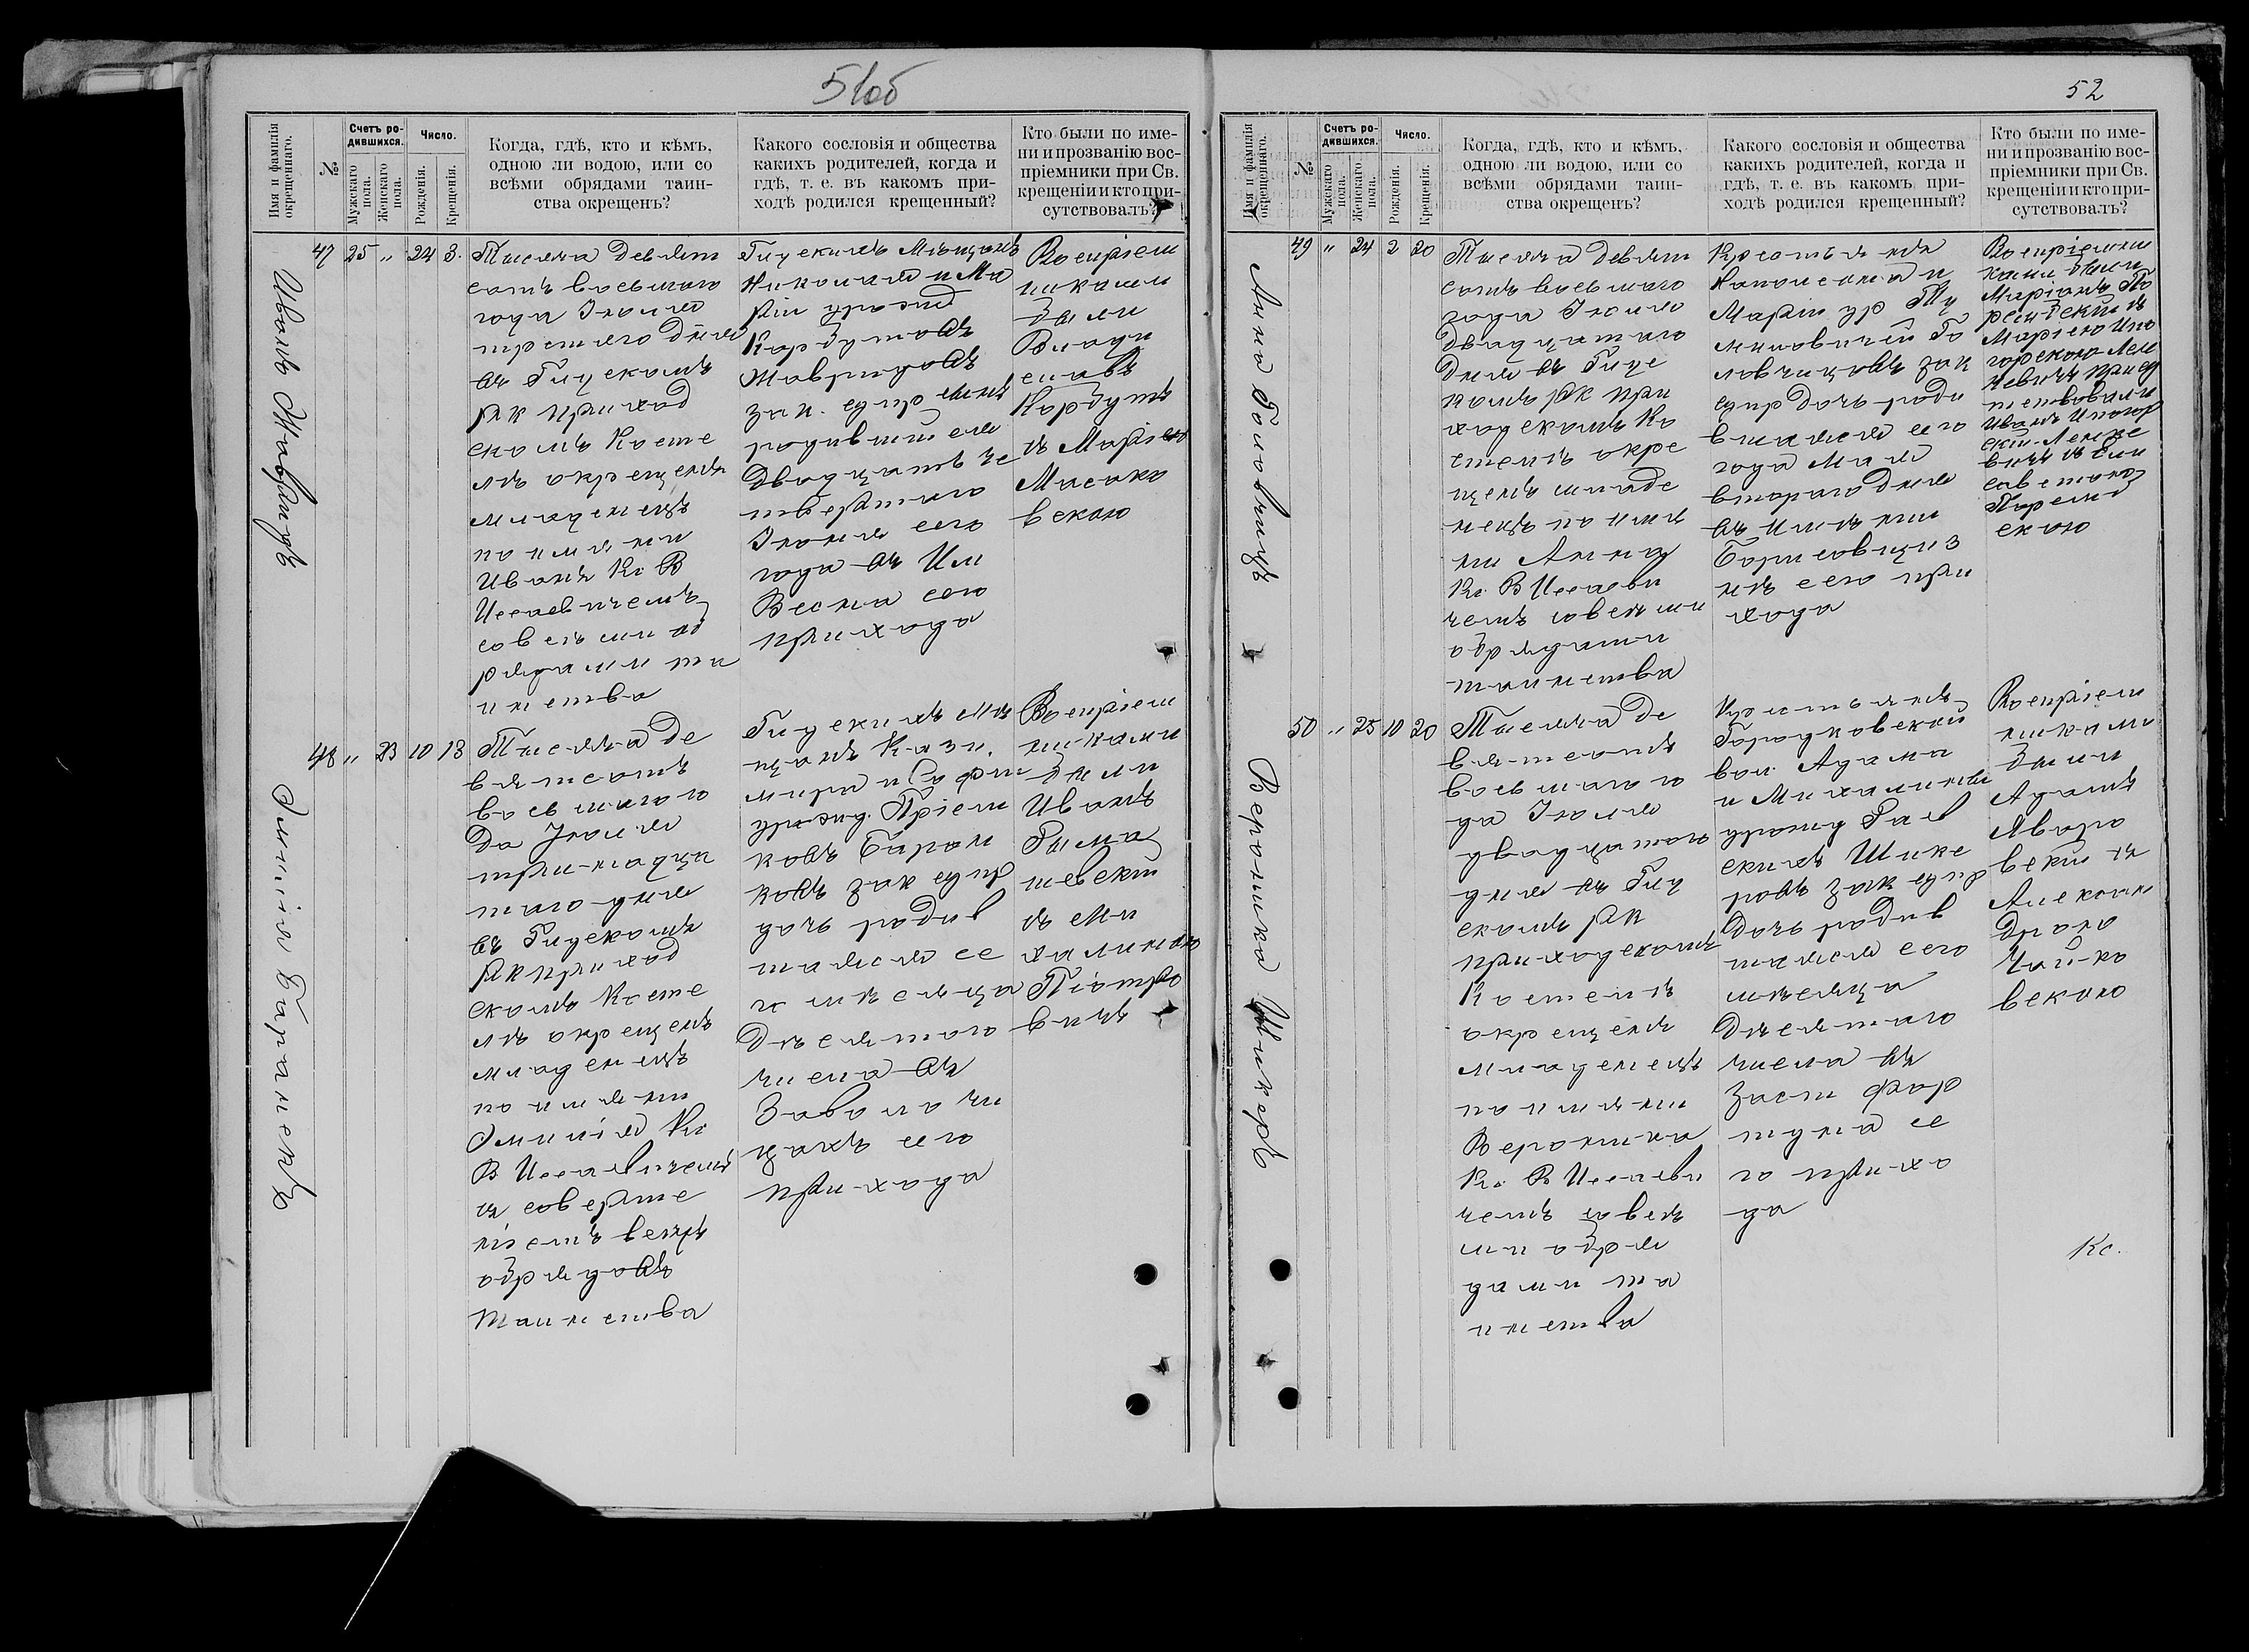 51об
Имя и фамилія окрещеннаго.
№
Счетъ ро-
дившихся.
Мужскаго пола.
Женскаго пола.
Число.
Рожденія.
Крещенія.
Когда, гдѣ, кто и кѣмъ,
одною ли водою, или со
всѣми обрядами таин-
ства окрещенъ?
Какого сословія и общества
какихъ родителей, когда и
гдѣ, т. е. въ какомъ при-
ходѣ родился крещенный?
Кто были по име-
ни и прозванію вос-
пріемники при Св.
крещеніи и кто при-
сутствовалъ?
Иванъ Жавридъ
47 25 „ 24 3.
Тысяча девять
сотъ восьмого
года Іюля
третьяго дня
въ Гицскомъ
РК приход
скомъ Косте
лѣ окрещенъ
младенецъ
по имени
Иванъ Кс В
Иссаевичемъ
со всѣми об
рядами та
инства
Мѣщанъ
Николая и Ма
ріи урожд
Кордутовъ
Жавридовъ
зак. супр сынъ
родившійся
двадцать че
твертаго
Іюня сего
года въ Им
Весна сего
прихода
Воспріем
никами
были
Влади
славъ
Кордутъ
съ Маріею
Масако
вскою
Эмилія Баранекъ
48 „ 23 10 13
Тысяча де
вятьсотъ
восьмого го
да Іюля
тринадца
таго дня
въ Гицскомъ
РК приход
скомъ Косте
лѣ окрещенъ
младенецъ
по имени
Эмилія Кс
В Иссаевичемъ
съ соверше
ніемъ всѣхъ
обрядовъ
Таинства
мѣ
щанъ Кази
мира и Софіи
урожд.
зак супр
дочь родив
шаяся се
го мѣсяца
Десятаго
числа въ
Заволочи
цахъ сего
прихода
Воспріем
никами
были
Иванъ
Рыма
шевскій
съ Ми
халиною
Піотро
вичъ
52
Имя и фамилія окрещеннаго.
№
Счетъ ро-
дившихся.
Мужскаго пола.
Женскаго пола.
Число.
Рожденія.
Крещенія.
Когда, гдѣ, кто и кѣмъ,
одною ли водою, или со
всѣми обрядами таин-
ства окрещенъ?
Какого сословія и общества
какихъ родителей, когда и
гдѣ, т. е. въ какомъ при-
ходѣ родился крещенный?
Кто были по име-
ни и прозванію вос-
пріемники при Св.
крещеніи и кто при-
сутствовалъ?
Анна Головчицъ
49 „ 24 2 20
Тысяча девять
сотъ восьмого
года Іюля
двадцатаго
дня въ Гицс
комъ РК при
ходскомъ Ко
стелѣ окре
щенъ младе
нецъ по име
ни Анна
Кс. В Иссаеви
чемъ со всѣми
обрядами
таинства
Крестьянъ
Наполеона и
Маріи ур
Го
ловчицовъ зак
супр дочь роди
вшаяся сего
года Мая
второго дня
въ имѣніи
сего при
хода
Воспріемни
ками были
Маріанъ
Маріею
Иванъ
скою
Вероника Шикеръ
50 „ 25 10 20
Тысяча де
вятьсотъ
восьмого го
да Іюля
двадцатаго
дня въ Гиц
скомъ РК
приходскомъ
Костелѣ
окрещенъ
младенецъ
по имени
Вероника
Кс. В Иссаеви
чемъ со всѣ
ми обря
дами та
инства
Крестьянъ
Городковской
вол. Адама
и Михалины
урожд
Шике
ровъ зак супр
дочь родив
шаяся сего
мѣсяца
Десятаго
числа въ
Заст Фор
туна се
го прихо
да
Воспріем
никами
были
Адамъ
Явaро
вскій съ
Алексан
дрою
Чайко
вскою
Кс.